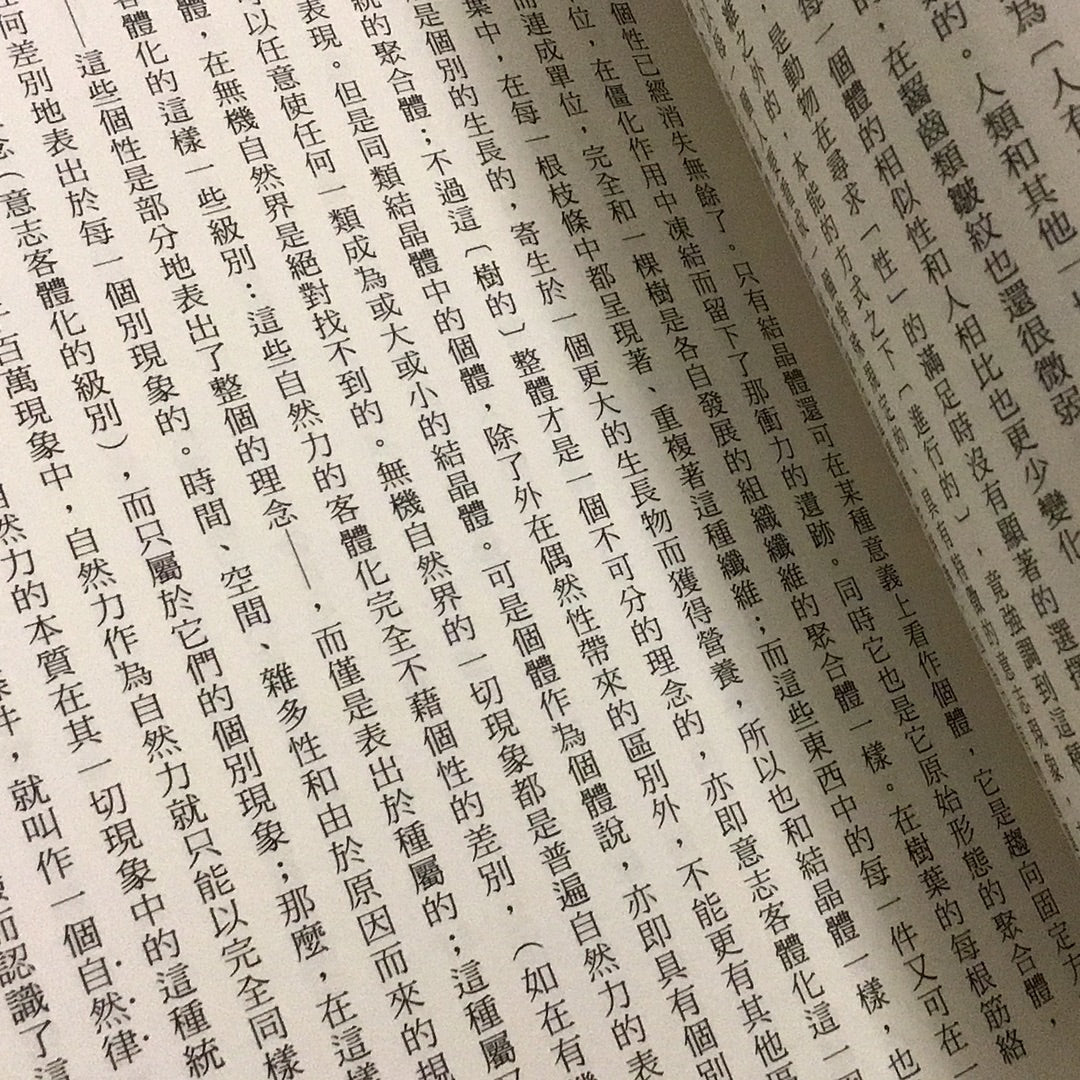 為〔人有
的。人類和其他一
，在齧齒類皺紋也還很微弱
每一個體的相似性和人相比也更少變化
，是動物在尋求「性」的滿足時沒有顯著的選擇
之外的，本能的方式之下〔進行的〕，竟強調到這種
個性已經消失無餘了。只有結晶體還可在某種意義上看作個體，它是趨向固定方
位，在僵化作用中凍結而留下了那衝力的遺跡。同時它也是它原始形態的聚合體，
而連成單位，完全和一棵樹是各自發展的組織纖維的聚合體一樣。在樹葉的每根筋絡
葉中，在每一根枝條中都呈現著、重複著這種纖維；而這些東西中的每一件又可在一
是個別的生長的，寄生於一個更大的生長物而獲得營養，所以也和結晶體一樣，也
統的聚合體；不過這〔樹的〕整體才是一個不可分的理念的，亦即意志客體化這一
表現。但是同類結晶體中的個體，除了外在偶然性帶來的區別外，不能更有其他區
以任意使任何一類成為或大或小的結晶體。可是個體作為個體說，亦即具有個別
體，在無機自然界是絕對找不到的。無機自然界的一切現象都是普遍自然力的表
體化的這樣一些級別：這些自然力的客體化完全不藉個性的差別，（如在有機
——這些個性是部分地表出了整個的理念——，而僅是表出於種屬的；這種屬又
何差別地表出於每一個別現象的。時間、空間、雜多性和由於原因而來的規
念（意志客體化的級別），而只屬於它們的個別現象；那麼，在這樣
百萬現象中，自然力作為自然力就只能以完全同樣
自然力的本質在其一切現象中的這種統
件，就叫作一個自然律
而認識了這